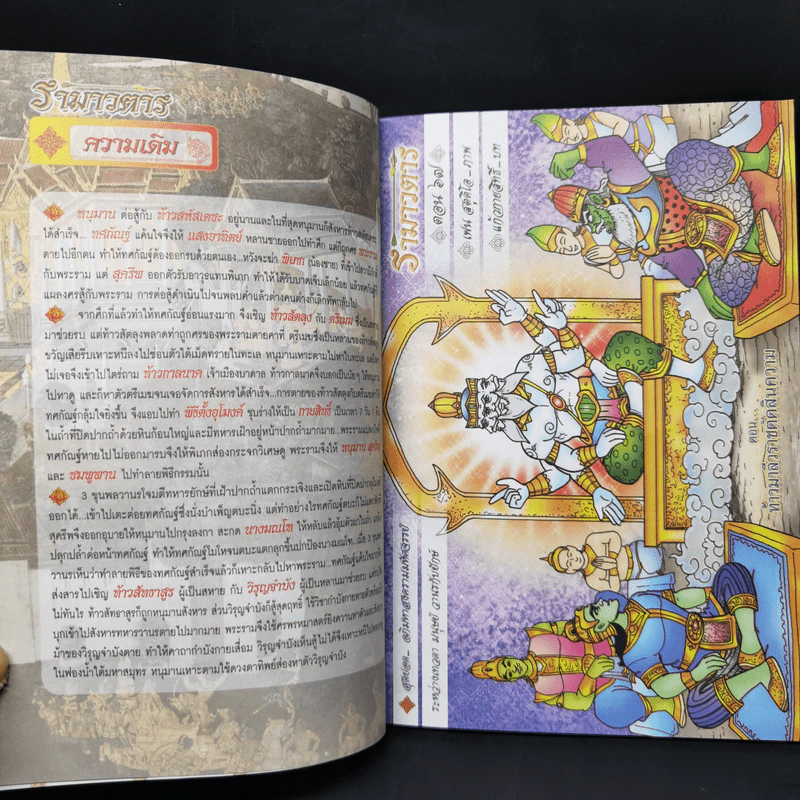 รามาวตาร
ความเดิม
หนุมาน ต่อสู้กับ ท้าวสหัสเดชะ อยู่นานและในที่สุดหนุมานก็สังหาร
ได้สำเร็จ... ทศกัณฐ์ แค้นใจจึงให้ แสงอาทิตย์ หลานชายออกไปทำศึก แต่ก็ถูกศร
ตายไปอีกตน ทำให้ทศกัณฐ์ต้องออกรบด้วยตนเอง...หวังจะฆ่า พิเภก (น้องชาย) ที่เข้าไป
กับพระราม แต่ สุครีพ ออกตัวรับอาวุธแทนพิเภก ทำให้ได้รับบาดเจ็บเล็กน้อย แล้วทศกัณฐ์
แผลงศรสู้กับพระราม การต่อสู้ดำเนินไปจนพลบค่ำแล้วต่างคนต่างก็เลิกทัพกลับไป
จากศึกที่แล้วทำให้ทศกัณฐ์อ่อนแรงมาก จึงเชิญ ท้าวสัตลุง กับ ตรีเมฆ ซึ่งเป็น
มาช่วยรบ แต่ท้าวสัตลุงพลาดท่าถูกศรของพระรามตายคาที่ ตรีเมฆซึ่งเป็นหลานของท้าวสัตลุง
ขวัญเสียรีบเหาะหนีลงไปซ่อนตัวใต้เม็ดทรายในทะเล หนุมานเหาะตามไปหาในทะเล
ไม่เจอจึงเข้าไปไต่ถาม ท้าวกาลนาค เจ้าเมืองบาดาล ท้าวกาลนาคจึงบอกเป็นนัยๆ ให้หนุมาน
ไปหาดู และก็หาตัวตรีเมฆจนเจอจัดการสังหารได้สำเร็จ...การตายของท้าวสัตลุงกับตรีเมฆ
ทศกัณฐ์กลุ้มใจยิ่งขึ้น จึงแอบไปทำ พิธีตั้งอุโมงค์ ชุบร่างให้เป็น กายสิทธิ์ เป็นเวลา 7 วัน 7 คืน
ในถ้ำที่ปิดปากถ้ำด้วยหินก้อนใหญ่และมีทหารเฝ้าอยู่หน้าปากถ้ำมากมาย...พระราม
ทศกัณฐ์หายไปไม่ออกมารบจึงให้พิเภกส่องกระจกวิเศษดู พระรามจึงให้ หนุมาน สุครีพ
และ ชมพูพาน ไปทำลายพิธีกรรมนั้น
3 ขุนพลวานรโจมตีทหารยักษ์ที่เฝ้าปากถ้ำแตกกระเจิงและเปิดหินที่ปิดปาก
ออกได้...เข้าไปเตะต่อยทศกัณฐ์ซึ่งนั่งบำเพ็ญตบะนิ่ง แต่ทำอย่างไรทศกัณฐ์ตบะก็ไม่
สุครีพจึงออกอุบายให้หนุมานไปกรุงลงกา สะกด นางมณโฑ ให้หลับแล้วอุ้มตัวมาในถ้ำ
ปลุกปล้ำต่อหน้าทศกัณฐ์ ทำให้ทศกัณฐ์โมโหจนตบะแตกลุกขึ้นปกป้องนางมณโฑ...เมื่อ 3 ขุนพล
วานรเห็นว่าทำลายพิธีของทศกัณฐ์สำเร็จแล้วก็เหาะกลับไปหาพระราม...
ส่งสารไปเชิญ ท้าวสัทธาสูร ผู้เป็นสหาย กับ วิรุญจำบัง ผู้เป็นหลานมาช่วยรบ
ไม่ทันไร ท้าวสัทธาสูรก็ถูกหนุมานสังหาร ส่วนวิรุญจำบังก็สู้สุดฤทธิ์ ใช้วิชากำบังกายหายตัว
บุกเข้าไปสังหารทหารวานรตายไปมากมาย พระรามจึงใช้ศรพรหมาสตร์ยิงควานหาตัว
ม้าของวิรุญจำบังตาย ทำให้คาถากำบังกายเสื่อม วิรุญจำบังเห็นสู้ไม่ได้จึงเหาะหนีไป
ในฟองน้ำใต้มหาสมุทร หนุมานเหาะตามใช้ดวงตาทิพย์ส่องหาตัววิรุญจำบัง
รามาวตาร
ตอน ๖๗
เฟน สตูดิโอ...ภาพ
แก้วกายสิทธิ์...บท
สุดยอด... มหาสงครามมหัศจรรย์
ระหว่างเทวดา มนุษย์ วานรกับยักษ์
ตอน...
ท้าวมาลีวราชตัดสินความ